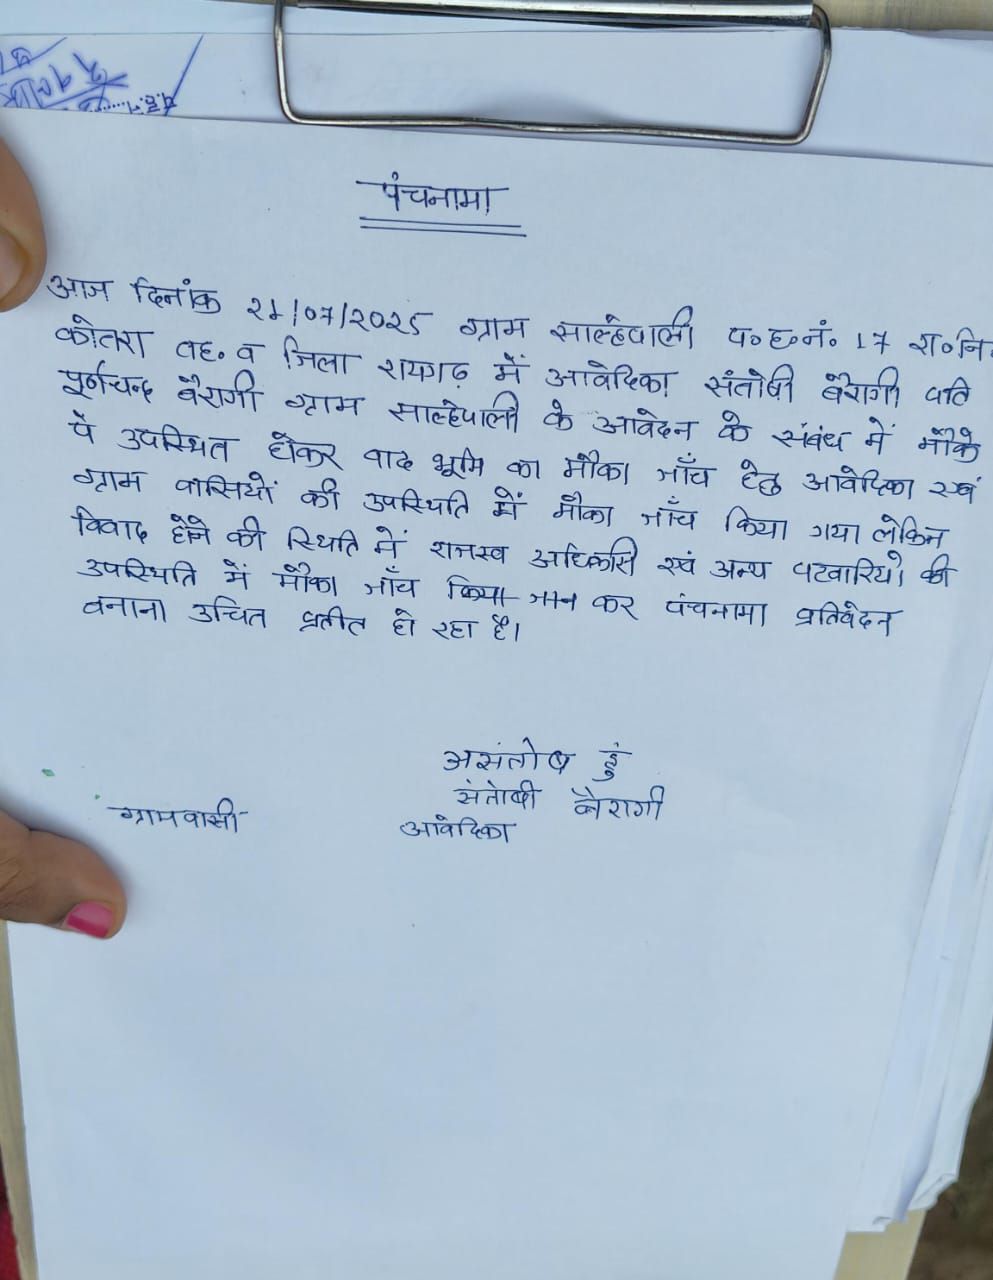 पंचनामा
आज दिनांक 21/07/2025 ग्राम साल्हेपाली प०ह०नं० 17 रा०नि०
कोतरा तह० व जिला रायगढ़ में आवेदिका संतोषी बैरागी पति
पूर्णचन्द बैरागी ग्राम साल्हेपाली के आवेदन के संबंध में मौके
पे उपस्थित होकर वाद भूमि का मौका जाँच हेतु आवेदिका एवं
ग्राम वासियों की उपस्थिति में मौका जाँच किया गया लेकिन
विवाद होने की स्थिति में राजस्व अधिकारी एवं अन्य पटवारियो की
उपस्थिति में मौका जाँच किया जान कर पंचनामा प्रतिवेदन
बनाना उचित प्रतीत हो रहा है।
असंतोष हुं
संतोषी बैरागी
ग्रामवासी आवेदिका